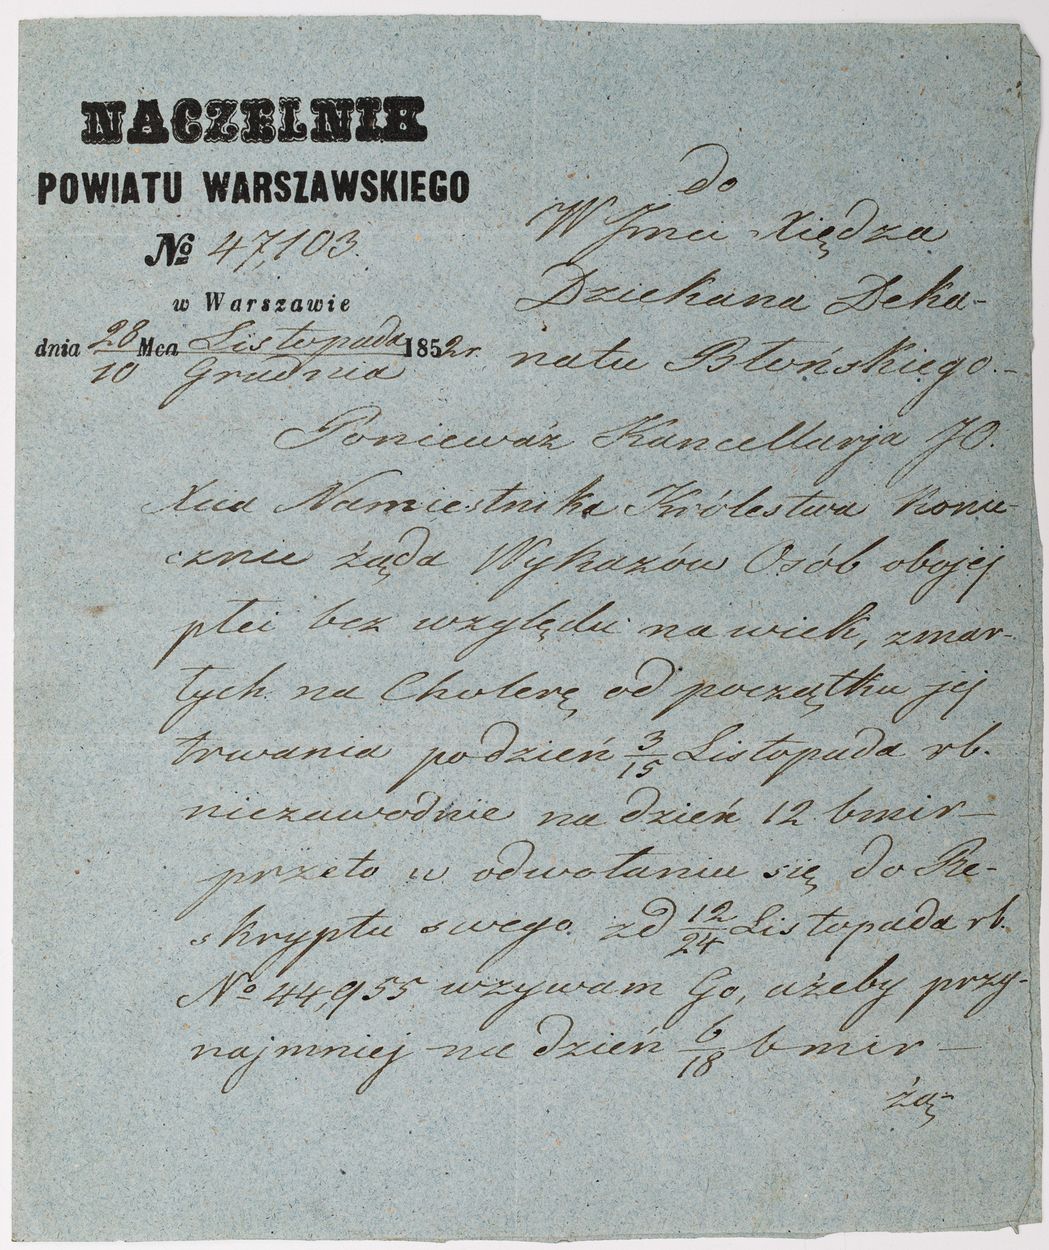 NACZELNIK
POWIATU WARSZAWSKIEGO
№ 47,103.
w Warszawie
dnia 28/10 Mca Listopada/Grudnia 1852 r.
do
W Jmci Xiędza
Dziekana Deka-
natu Błońskiego.-
Ponieważ Kancellarja JO.
Xcia Namiestnika Królestwa konie-
cznie żąda Wykazów Osób obojej
płci bez względu na wiek, zmar-
łych na Cholerę od początku jej
trwania podzień 3/15 Listopada rb.
niezawodnie na dzień 12 bmir-
przeto w odwołaniu się do Re-
skryptu swego zd 12/24 Listopada rb.
No 44,955 wzywam Go, ażeby przy-
najmniej na dzień 6/18 bmir-
żą-